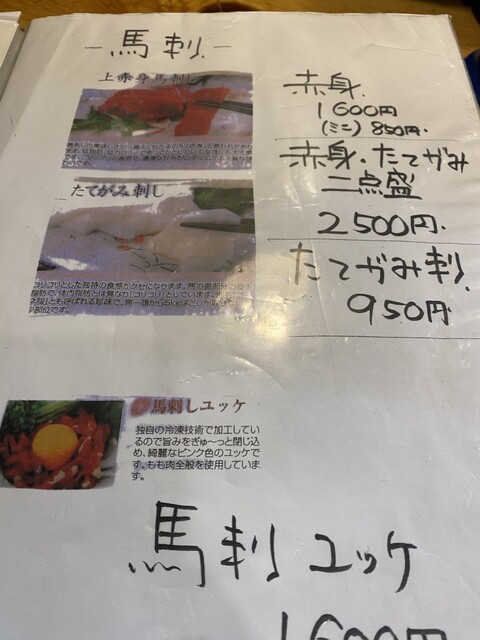 －馬刺．－
上赤身馬刺し
赤身．
1600円
(ミニ) 850円．
赤身・たてがみ
二点盛
2500円．
たてがみ刺し
コリコリとした独特の食感がクセになります。
たてがみ刺．
950円
馬刺しユッケ
独自の冷凍技術で加工してい
るので旨みをぎゅ～っと閉じ込
め、綺麗なピンク色のユッケで
す。もも肉全般を使用していま
す。
馬刺ユッケ
1600円